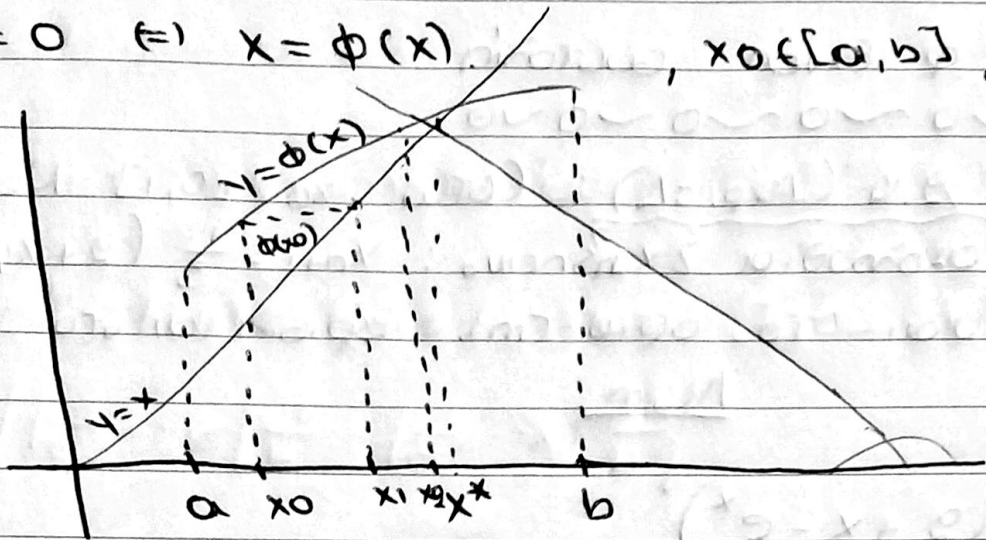 = 0 (=) x = φ(x). , x0 ∈ [a, b],
y = φ(x)
φ(x0)
y = x
a x0 x1 x2 x* b